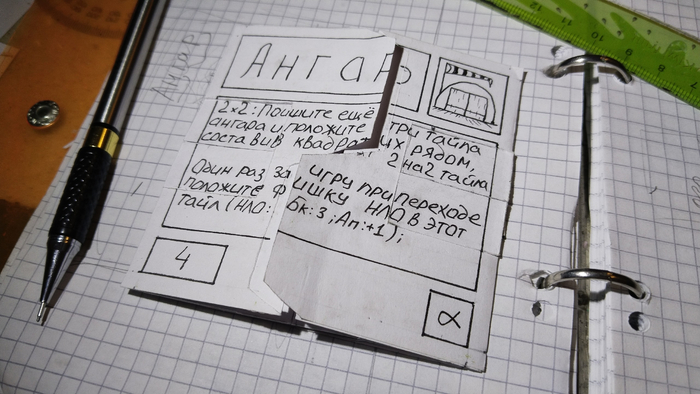 Ангар
Ангар
2×2: Поищите ещё три тайла
ангара и положите их рядом,
составив квадрат 2 на 2 тайла
Один раз за игру при переходе
положите фишку НЛО в этот
тайл (НЛО: Бк:3; Ап:+1);
4
α